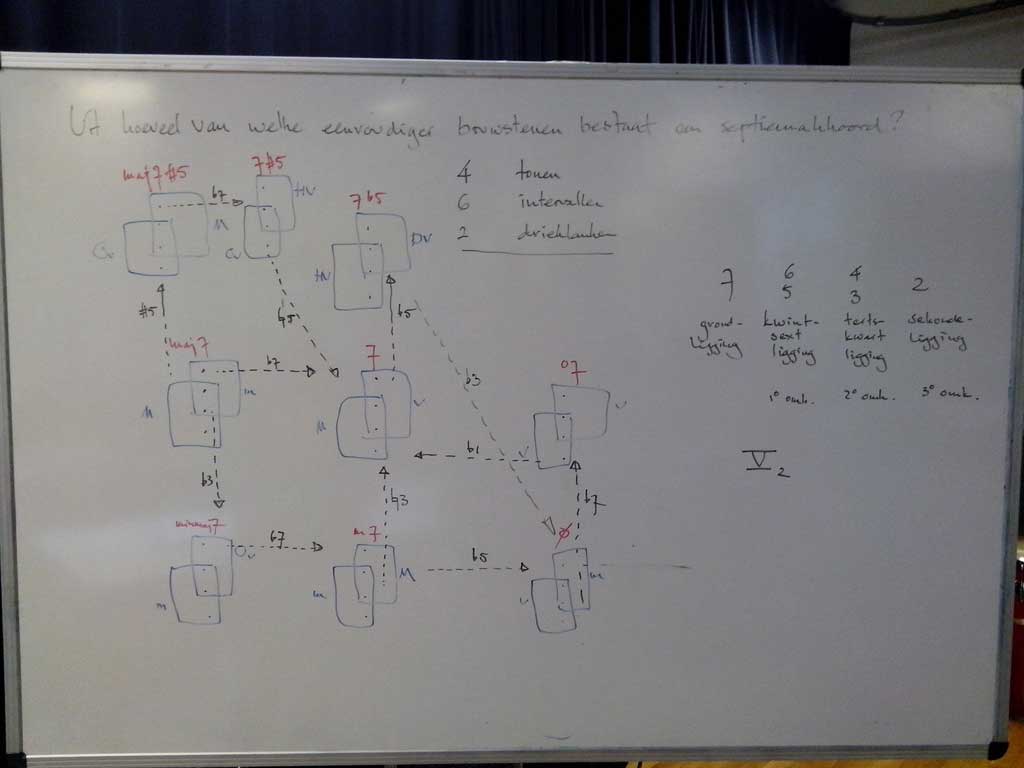 Uit hoeveel van welke eenvoudiger bouwstenen bestaat een septiemakkoord?
4 tonen
6 intervallen
2 drieklanken
maj7#5
b7
7#5
HV
M
Ov
Ov
7b5
DV
HV
#5
♮5
b5
maj7
b7
m
M
7
V
M
b3
o7
V
V
b1
b3
♮3
b7
minmaj7
Ov
b7
m
m7
M
m
b5
ø
m
V
7
6
5
4
3
2
grond-
ligging
kwint-
sext
ligging
terts-
kwart
ligging
sekonde-
ligging
1° omk.
2° omk.
3° omk.
V2